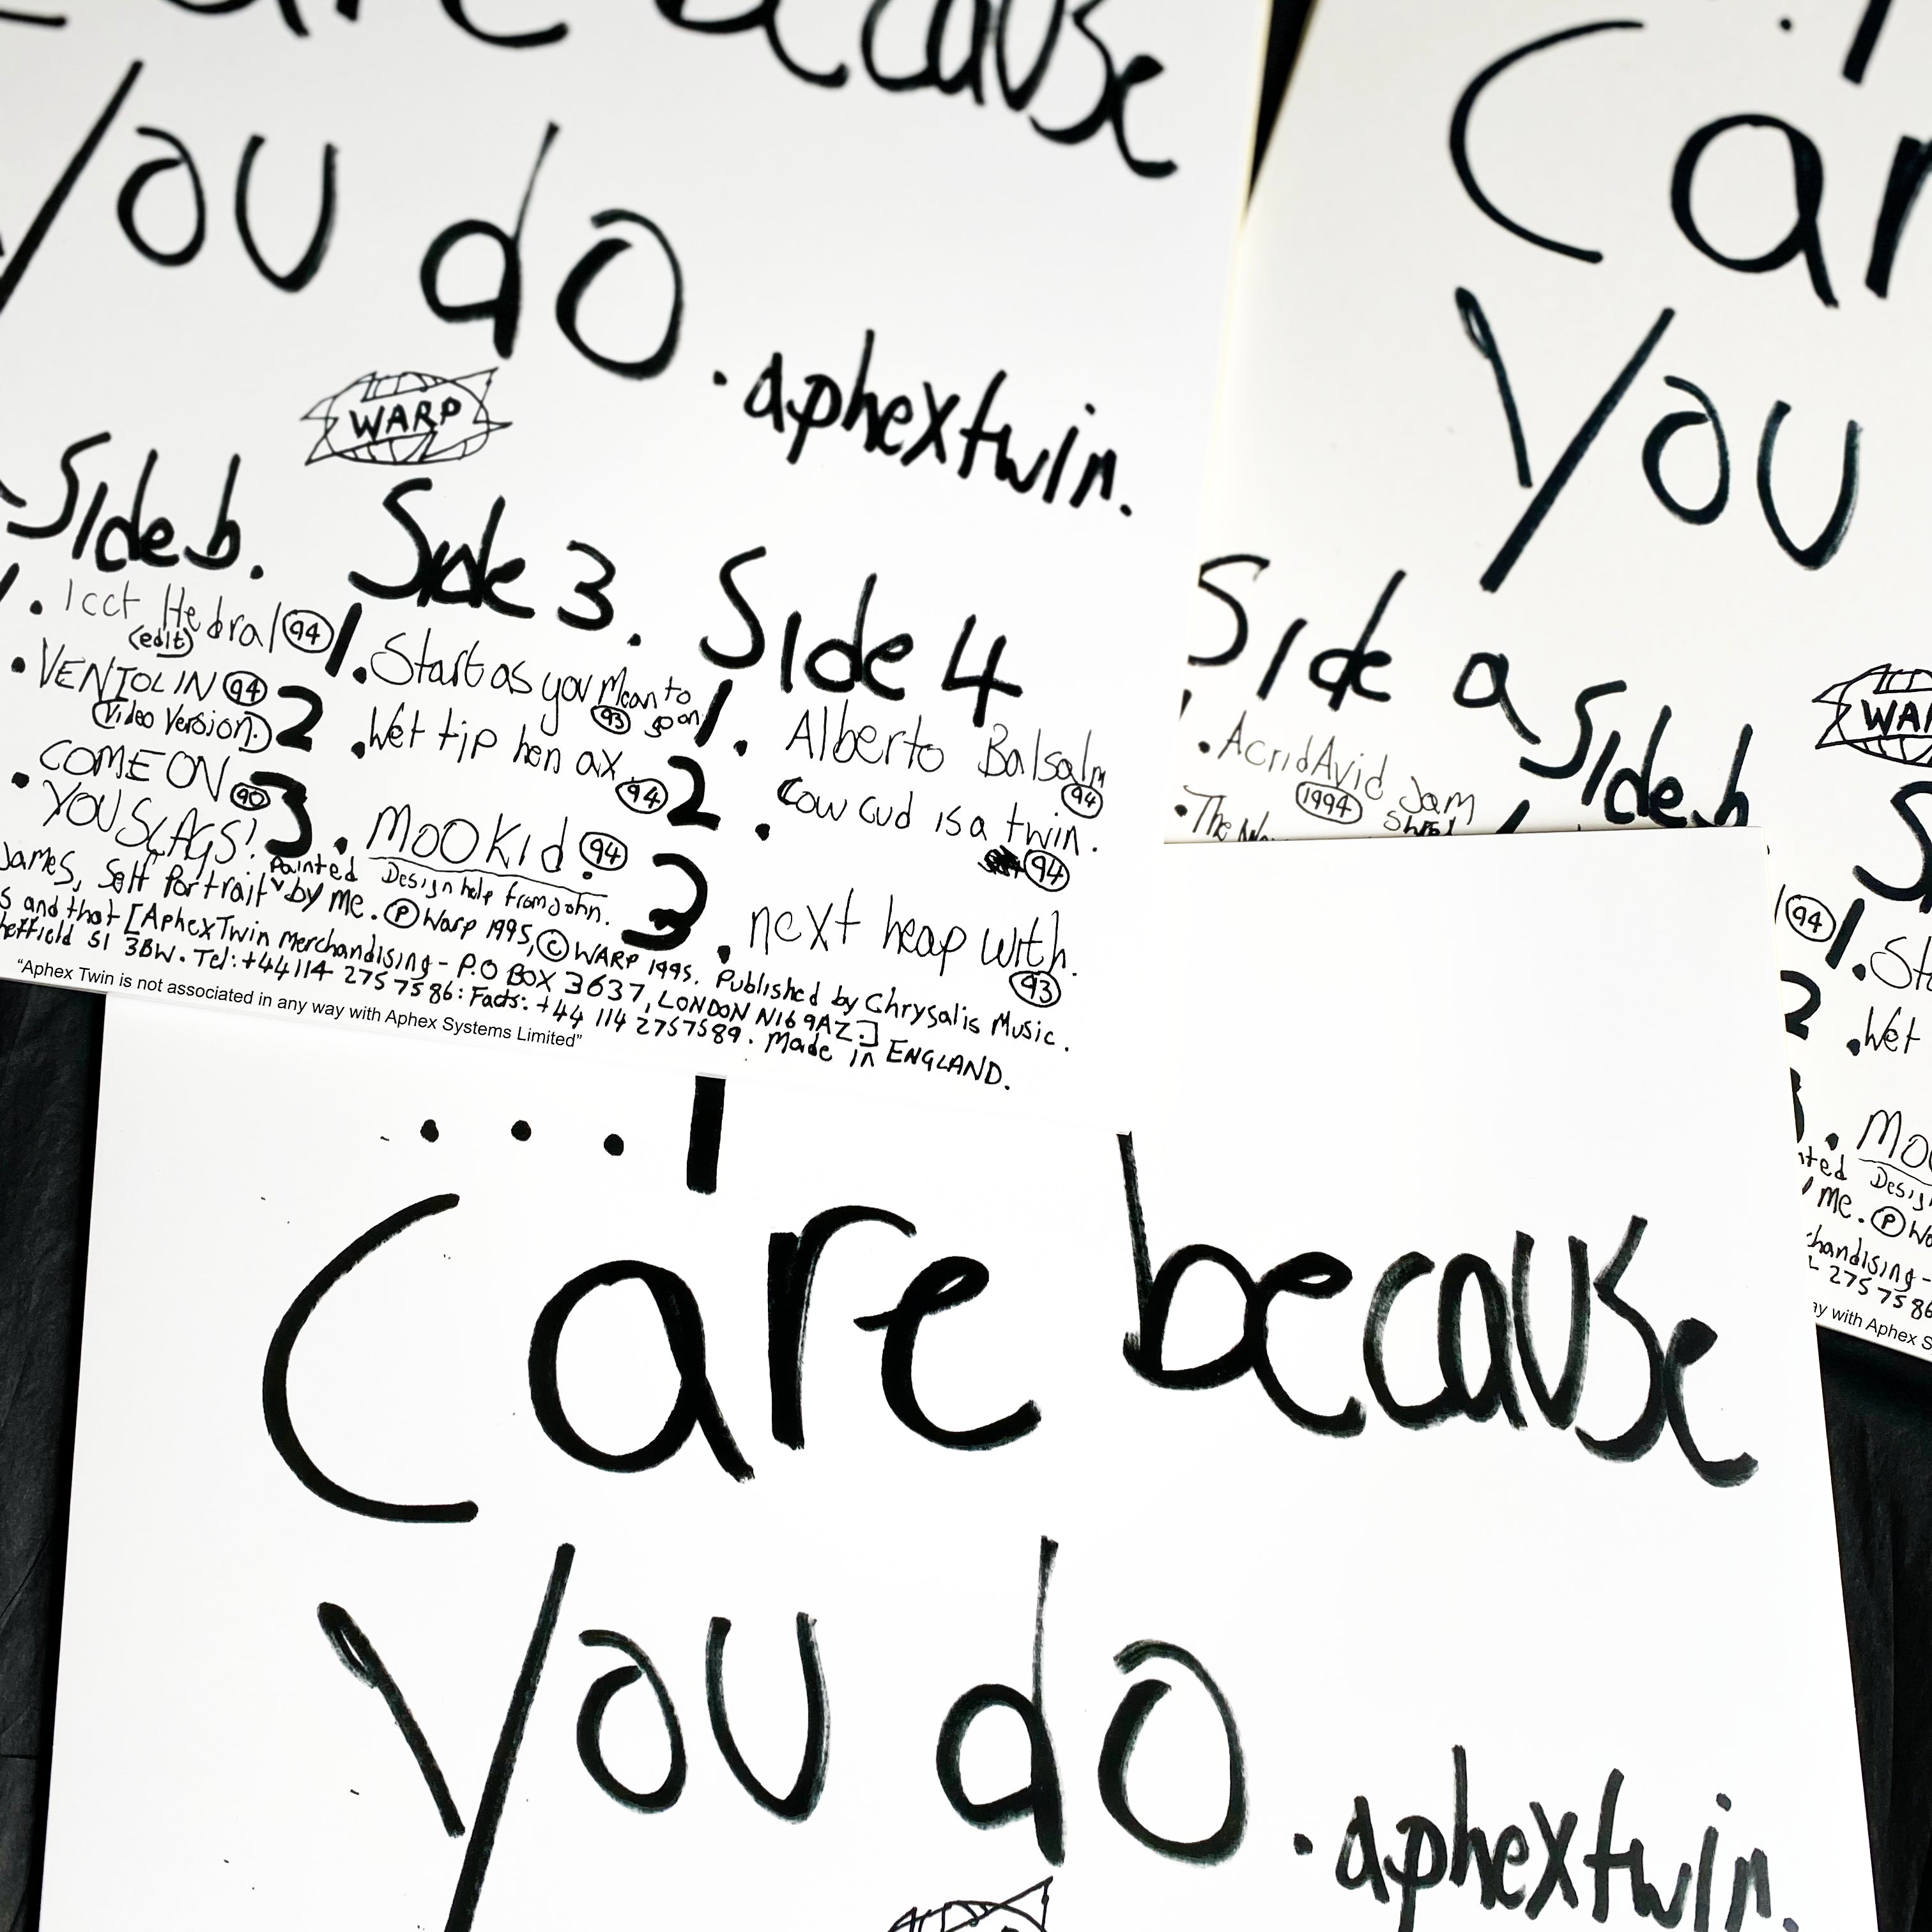 care because
you do.
.aphextwin.
WARP
Side b.
1. Icct Hedral (94)
(edit)
. VENTOLIN (94)
(Video Version.)
. COME ON
YOU SLAGS! (90)
Side 3.
1. Start as you Mean to
go on (93)
2 . Wet tip hen ax. (94)
3 . MOOKid. (94)
Design help from John.
Side 4
1. Alberto Balsalm
(94)
2. Cow Cud is a twin.
(94)
3 . next heap with.
(93)
James, Self Portrait Painted by me. Ⓟ Warp 1995, © WARP 1995. Published by Chrysalis Music.
s and that [AphexTwin Merchandising - P.O BOX 3637, LONDON N16 9AZ.]
heffield S1 3BW. Tel: +44 114 275 7586: Facts: +44 114 2757589. Made in ENGLAND.
“Aphex Twin is not associated in any way with Aphex Systems Limited”
Car
you
WAR
Side a
. AcridAvid Jam
(1994) Shred
. The
Side b
(94) 1. Sta
2 . Wet
. Moo
nted Desig
me. Ⓟ Wa
chandising -
275 7586
ay with Aphex S
...I
Care because
you do
.aphextwin.